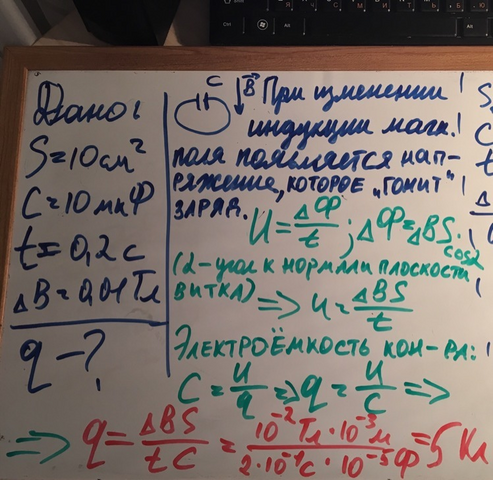 Дано:
S=10 см²
C=10 мкФ
t=0,2 с
ΔB=0,01 Тл
q-?
C B⃗ При изменении
индукции магн.
поля появляется нап-
ряжение, которое "гонит"
заряд.
U=ΔФ/t; ΔФ=ΔBS·cosα
(α-угол к нормали плоскости
витка) => U=ΔBS/t
Электроёмкость кон-ра:
C=U/q => q=U/C =>
=> q=ΔBS/tC=10⁻²Тл·10⁻³м/2·10⁻¹с·10⁻⁵Ф=5 Кл